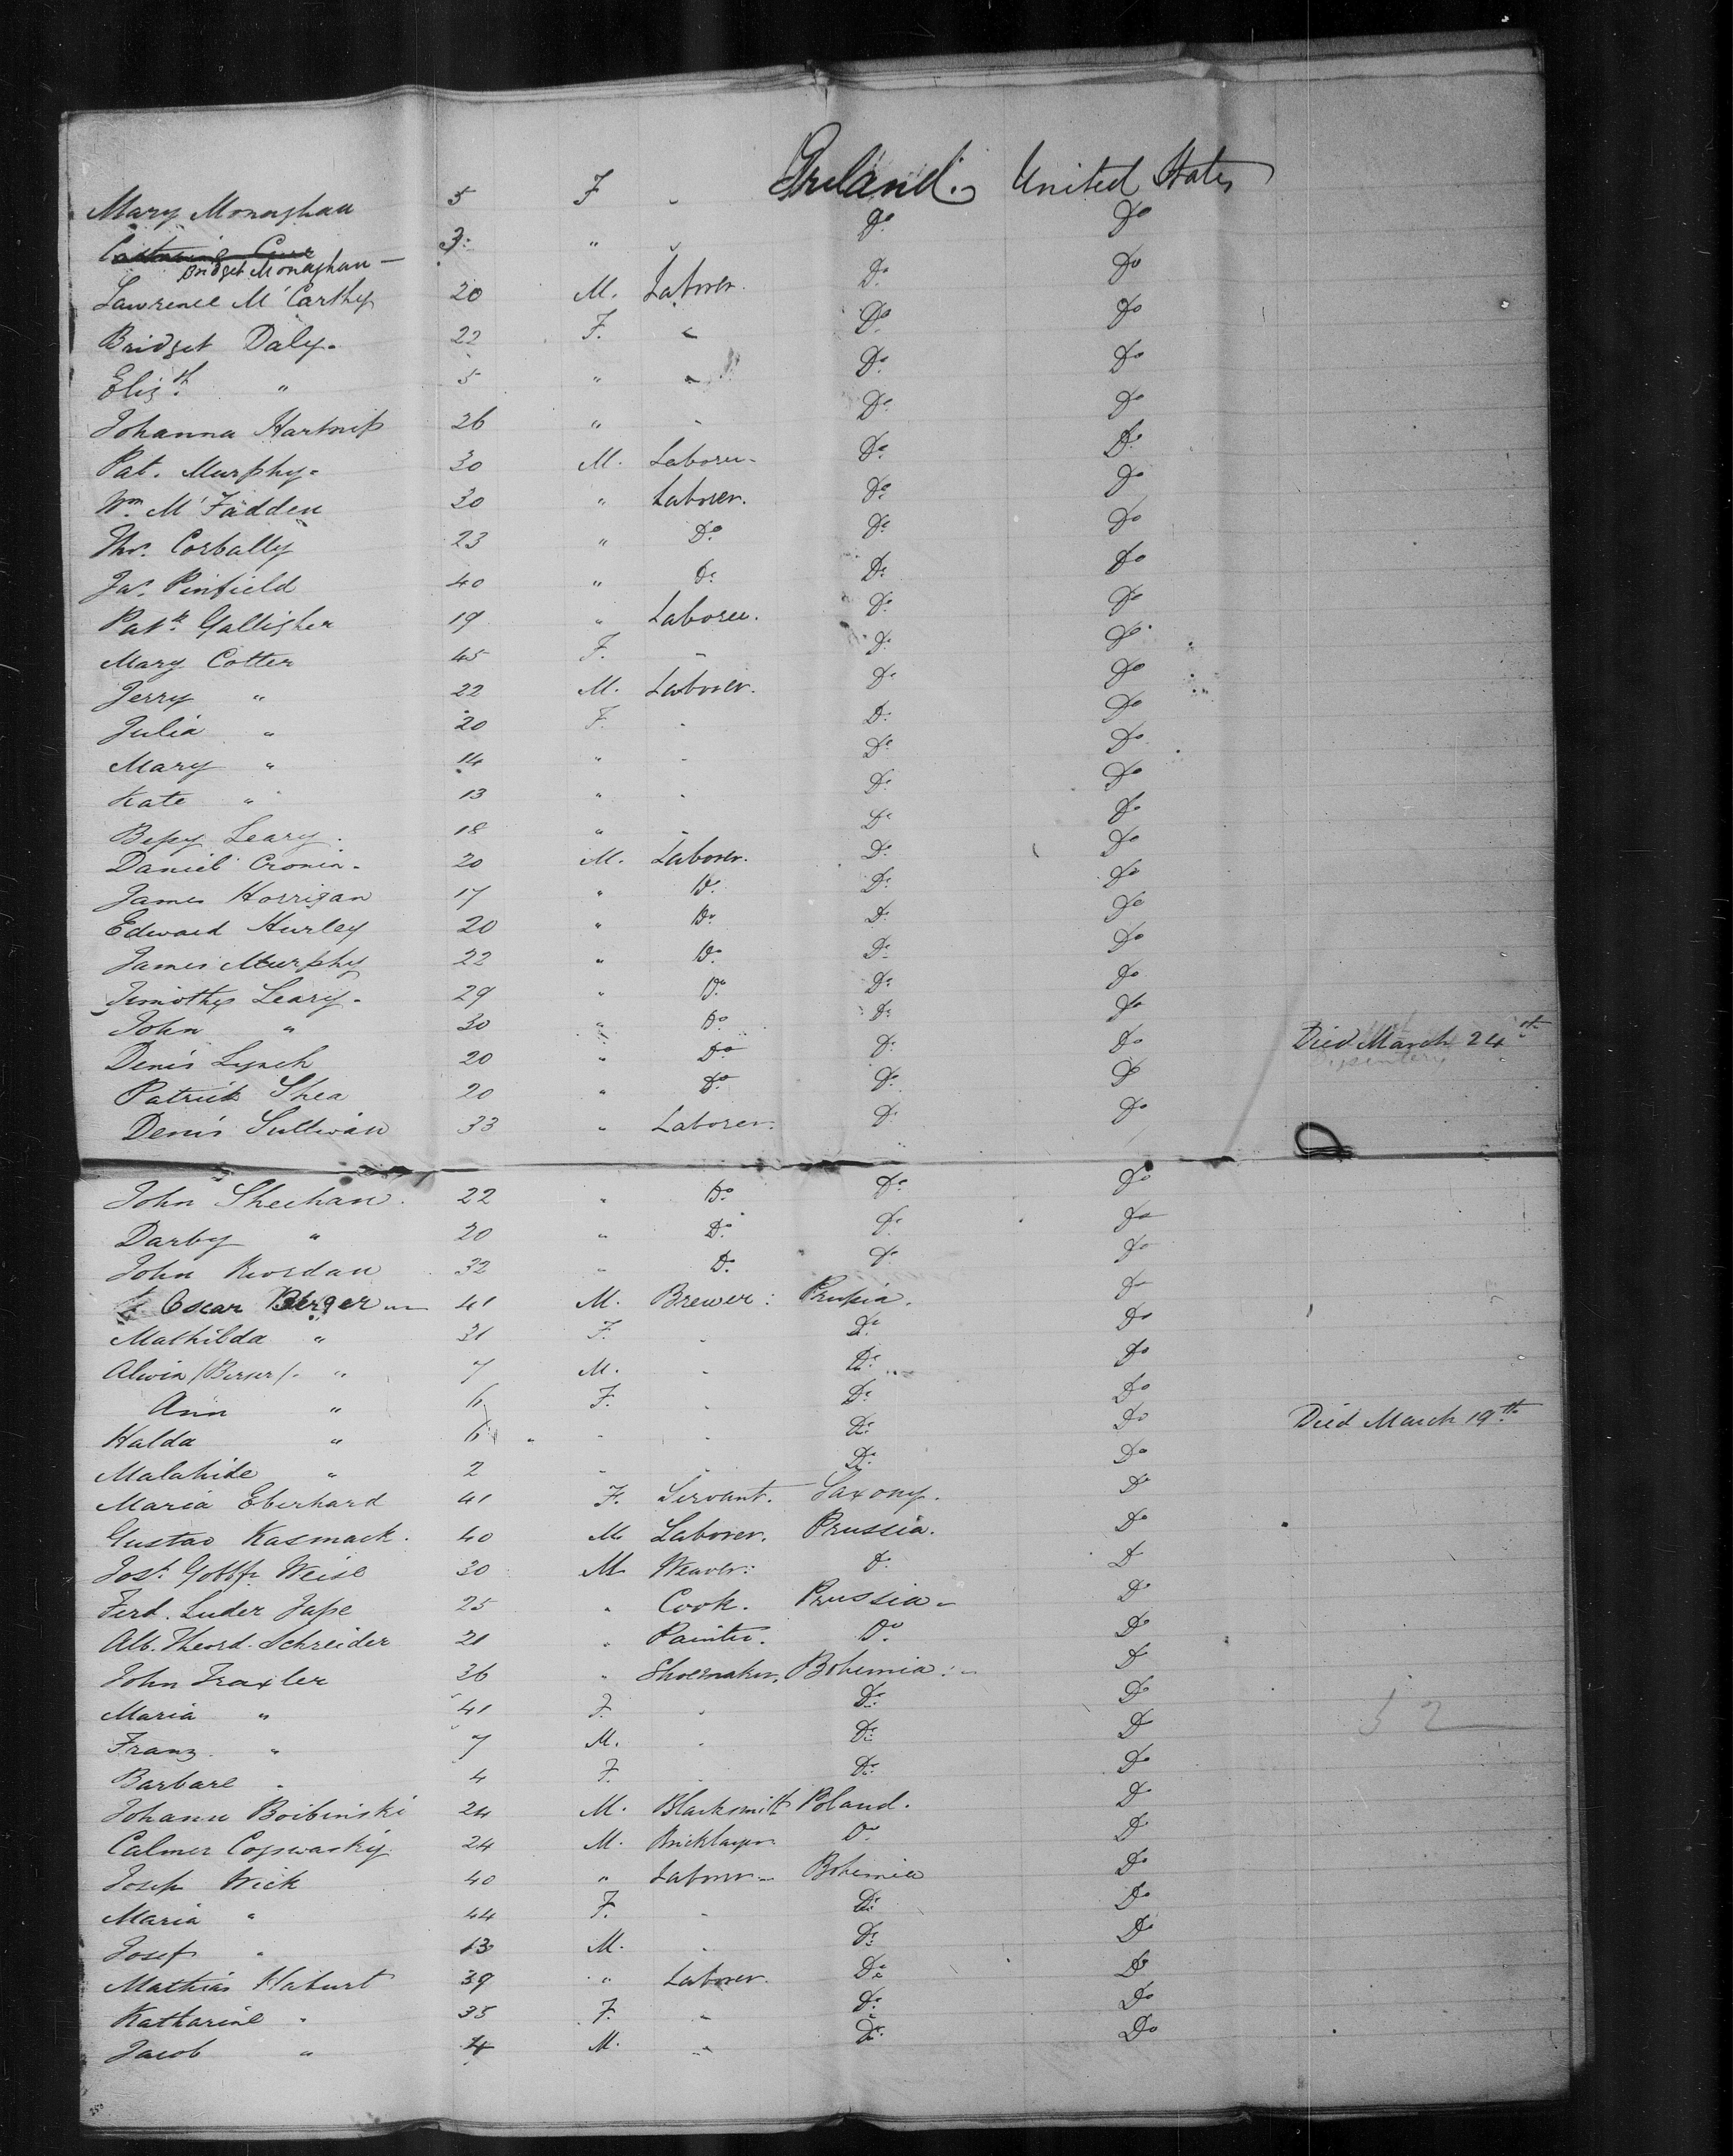 Mary Monaghan 5 F " Ireland. United States
Bridget Monaghan — 3 " " Do Do
Lawrence McCarthy 20 M. Laborer. Do Do
Bridget Daly. 22 F. " Do Do
Elizth " 5 " " Do Do
Johanna Hartniss 26 " " Do Do
Pat. Murphy. 30 M. Laborer Do Do
Wm McFadden 30 " Laborer. Do Do
Thos. Corbally 23 " Do Do Do
Jas. Pinfield 40 " Do Do Do
Patk Galligher 19 " Laborer. Do Do
Mary Cotter 45 F. " Do Do
Jerry " 22 M. Laborer. Do Do
Julia " 20 F. " Do Do
Mary " 14 " " Do Do
Kate " 13 " " Do Do
Bessy Leary. 18 " " Do Do
Daniel Cronin. 20 M. Laborer. Do Do
James Horrigan 17 " Do Do Do
Edward Hurley 20 " Do Do Do
James Murphy 22 " Do Do Do
Timothy Leary. 29 " Do Do Do
John " 30 " Do Do Do
Denis Lynch 20 " Do Do Do Died March 24th
Patrick Shea 20 " Do Do Do
Denis Sullivan 33 " Laborer. Do Do
John Sheehan. 22 " Do Do Do
Darby " 20 " Do Do Do
John Riordan 32 " Do Do Do
Oscar Berger 41 M. Brewer: Prussia. Do
Mathilda " 31 F. " Do Do
Alwin (Berger). " 7 M. " Do Do
Ann " 6 F. " Do Do
Halda " 6 " " " Do Do Died March 19th
Malahide " 2 " " Do Do
Maria Eberhard 41 F. Servant. Saxony. Do
Gustav Kasmack. 40 M Laborer. Prussia. Do
Josh. Gottfr. Weise 30 M Weaver: Do Do
Ferd. Luder Jape 25 " Cook. Prussia Do
Alb. Theord. Schreider 21 " Painter. Do Do
John Traxler 36 " Shoemaker. Bohemia: Do
Maria " 41 F. " Do Do
Franz " 7 M. " Do Do
Barbare " 4 F. " Do Do
Johann Boibinski 24 M. Blacksmith Poland. Do
Calmer Copswasky 24 M. Bricklayer Do Do
Josef Wick 40 " Laborer Bohemia Do
Maria " 44 F. " Do Do
Josef " 13 M. " Do Do
Mathias Haburt 39 " Laborer. Do Do
Katharine " 35 F. " Do Do
Jacob " 4 M. " Do Do